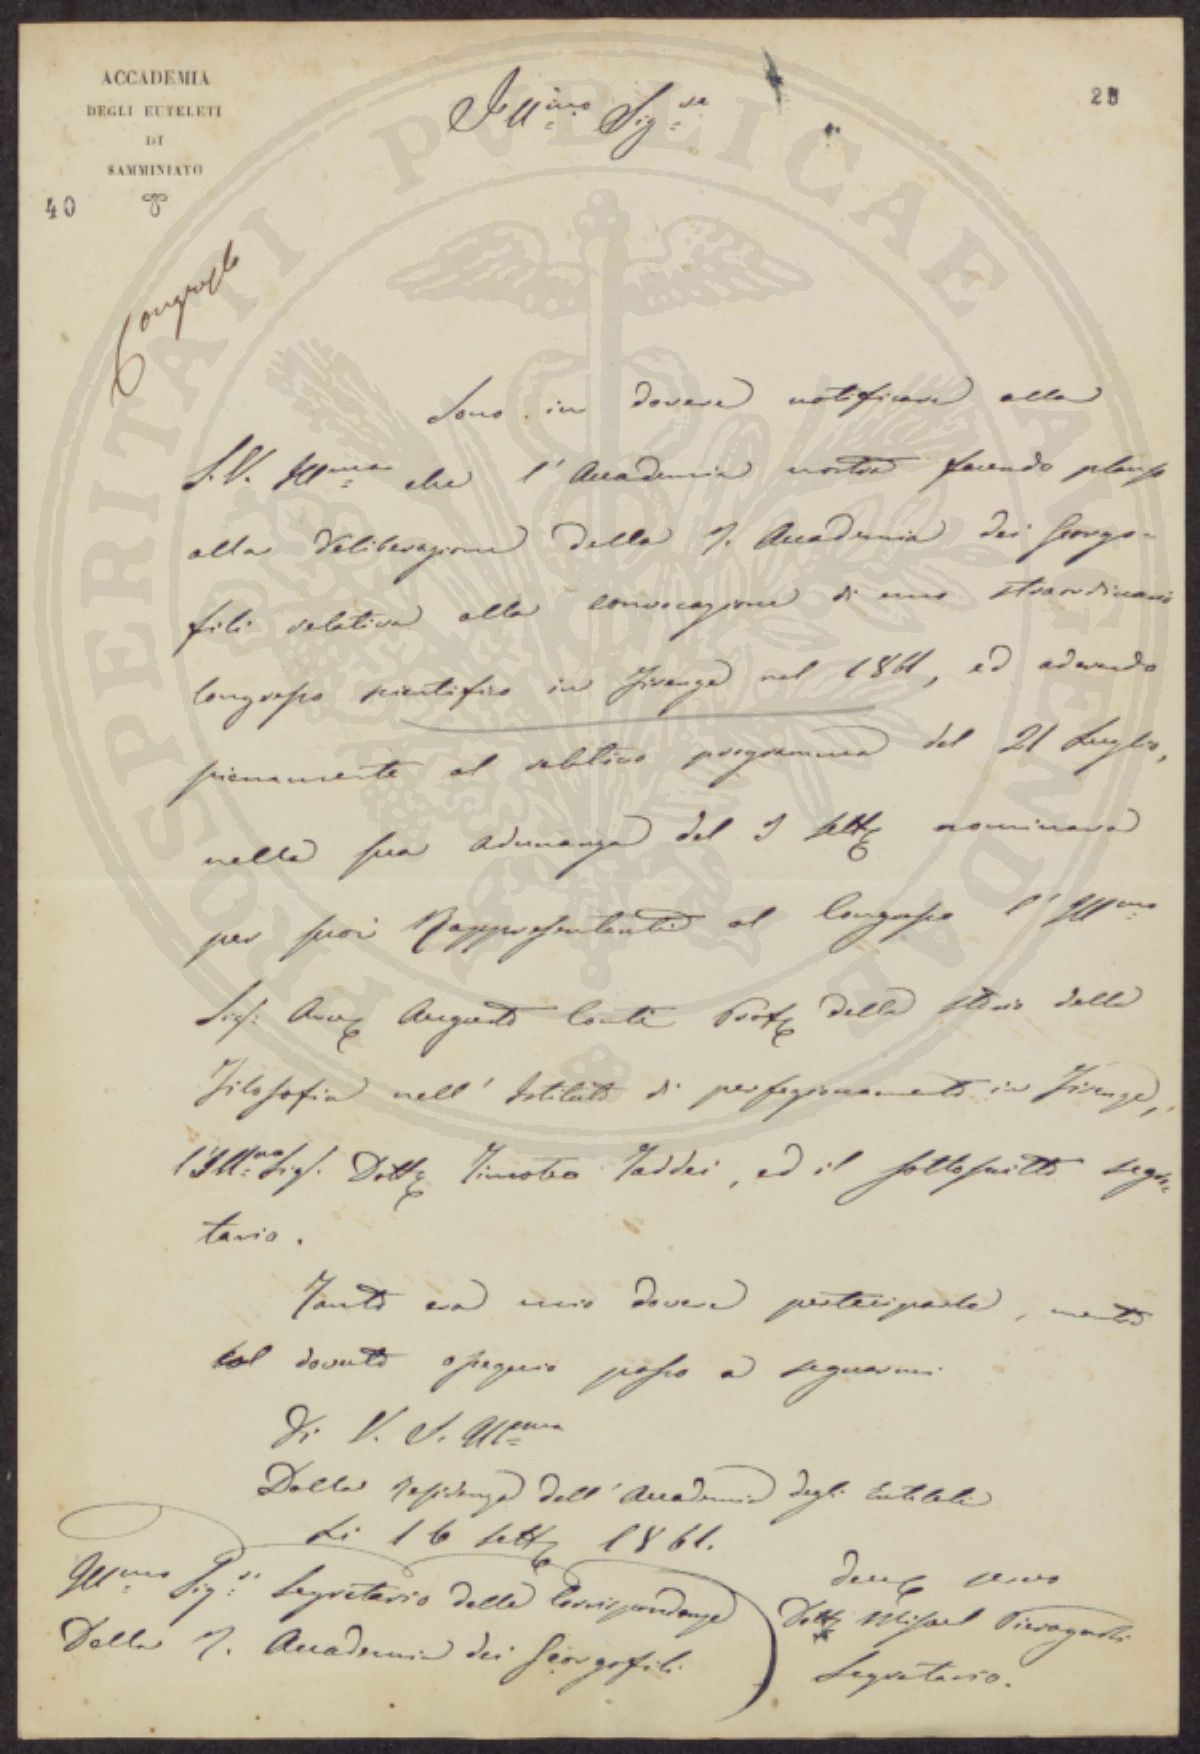 ACCADEMIA
DEGLI EUTELETI
DI
SAMMINIATO
40
Ill.mo Sig.re
Congresso
Sono in dovere notificare alla
S.V. Ill.ma che l'Accademia nostra facendo plauso
alla Deliberazione della R. Accademia dei Georgo-
fili relativa alla convocazione di uno straordinario
Congresso scientifico in Firenze nel 1861, ed aderendo
pienamente al relativo programma del 21 Luglio,
nella sua adunanza del settE nominava
per suoi Rappresentanti al Congresso l'Ill.mo
Sig: Avv. Augusto Conti Prof. della storia della
Filosofia nell'Istituto di perfezionamento in Firenze,
l'Ill.mo Sig. Dott. Timoteo Taddei, ed il sottoscritto segre-
tario.
Tanto era mio dovere parteciparle, mentre
col dovuto ossequio passo a segnarmi
Di V. S. Ill.ma
Dalla residenza dell'Accademia degli Euteleti
Li 16 sett. 1861.
Ill.mo Sig.re Segretario delle Corrispondenze
Della R. Accademia dei Georgofili
servo
Dott. Pieragnoli
Segretario.
PROSPERITATI PUBLICAE AUGENDAE